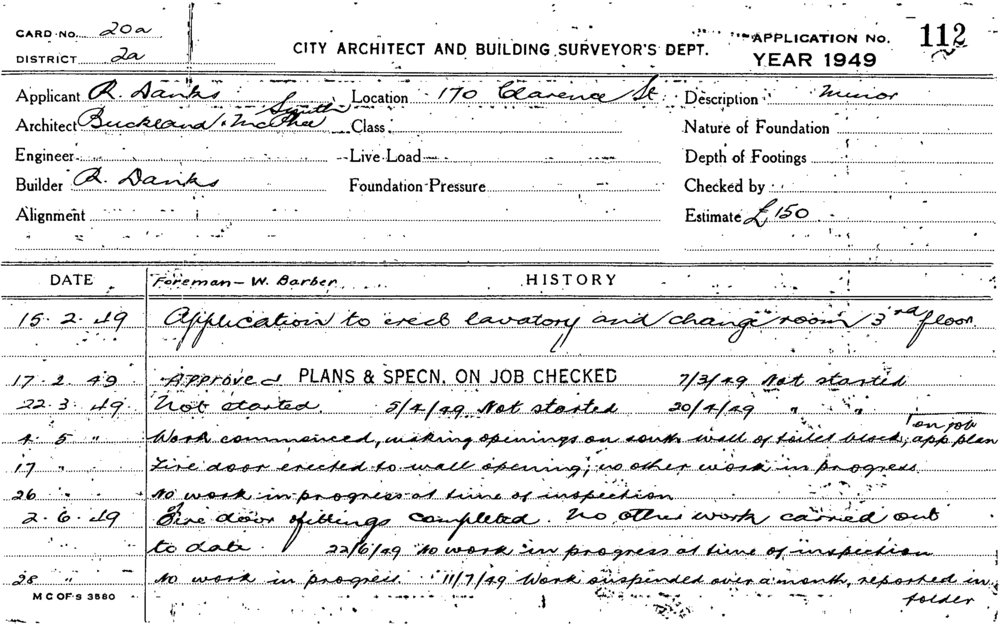 CARD No. 20a
DISTRICT 2a
CITY ARCHITECT AND BUILDING SURVEYOR'S DEPT.
APPLICATION No. 112
YEAR 1949
Applicant R. Danks Location 170 Clarence St Description Minor
Smith
Architect Buckland & McPhee Class Nature of Foundation
Engineer Live Load Depth of Footings
Builder R. Danks Foundation Pressure Checked by
Alignment Estimate £150
DATE Foreman - W. Barber HISTORY
15. 2. 49 Application to erect lavatory and change room 3rd floor.
17. 2. 49 Approved PLANS & SPECN. ON JOB CHECKED 7/3/49 Not started
22. 3. 49 Not started. 5/4/49 Not started 20/4/49 " "
on job
4. 5 " Work commenced, making openings on south wall of toilet block, app plan
17 " Fire door erected to wall opening; no other work in progress
26 " No work in progress at time of inspection
2. 6. 49 Fire door fittings completed. No other work carried out
to date. 22/6/49 No work in progress at time of inspection
28 " No work in progress. 11/7/49 Work suspended over a month, reported in
folder
M C OF S 3580